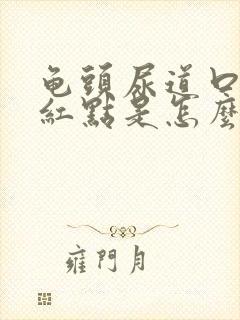 龟頭尿道口
紅點是怎麼
雍門月